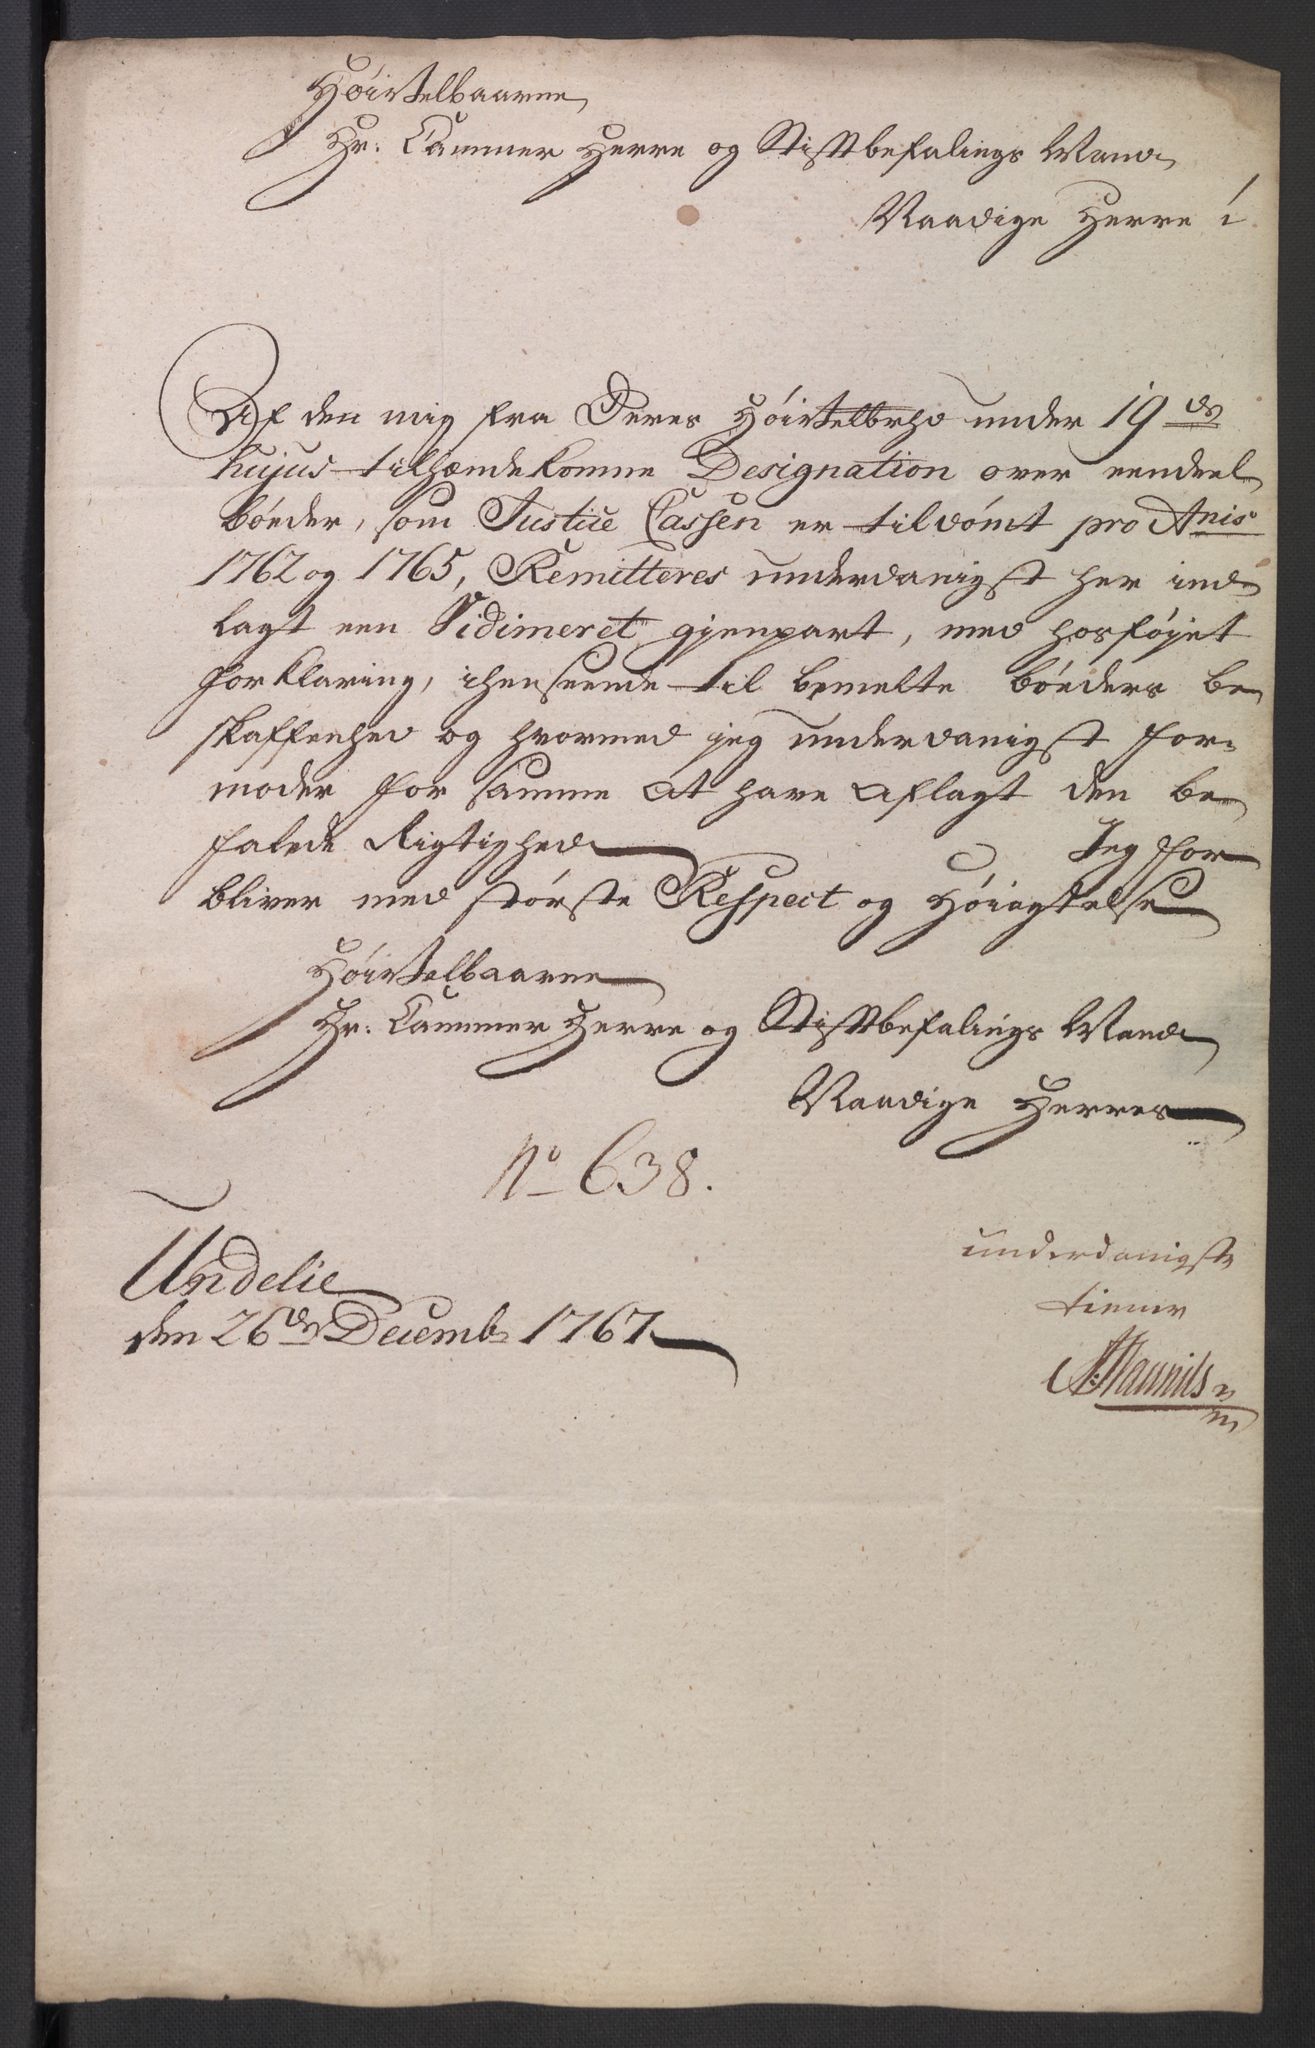 Höivelbaarne
Hr. Cammer Herre og Stiftbefalings Mand
Naadige Herre!
Af den mig fra Deres Höivelbrhd under 19de
hujus tilhændekomne Designation over eendeel
böeder, som Justice Cassen er tildömt pro Anis
1762 og 1765, Remitteres underdanigst her ind
lagt een Vidimeret gjenpart, med hosföjet
forklaring, ihenseende til bemelte böeders be
skaffenhed og hvormed jeg underdanigst for-
moder for samme at have aflagt den be
falede Rigtighed Jeg for
bliver med störste Respect og Höiagtelse
Höivelbaarne
Hr. Cammer Herre og Stiftbefalings Mand
Naadige Herres
No 638.
Undelie
den 26de Decemb 1767
underdanigste
tiener